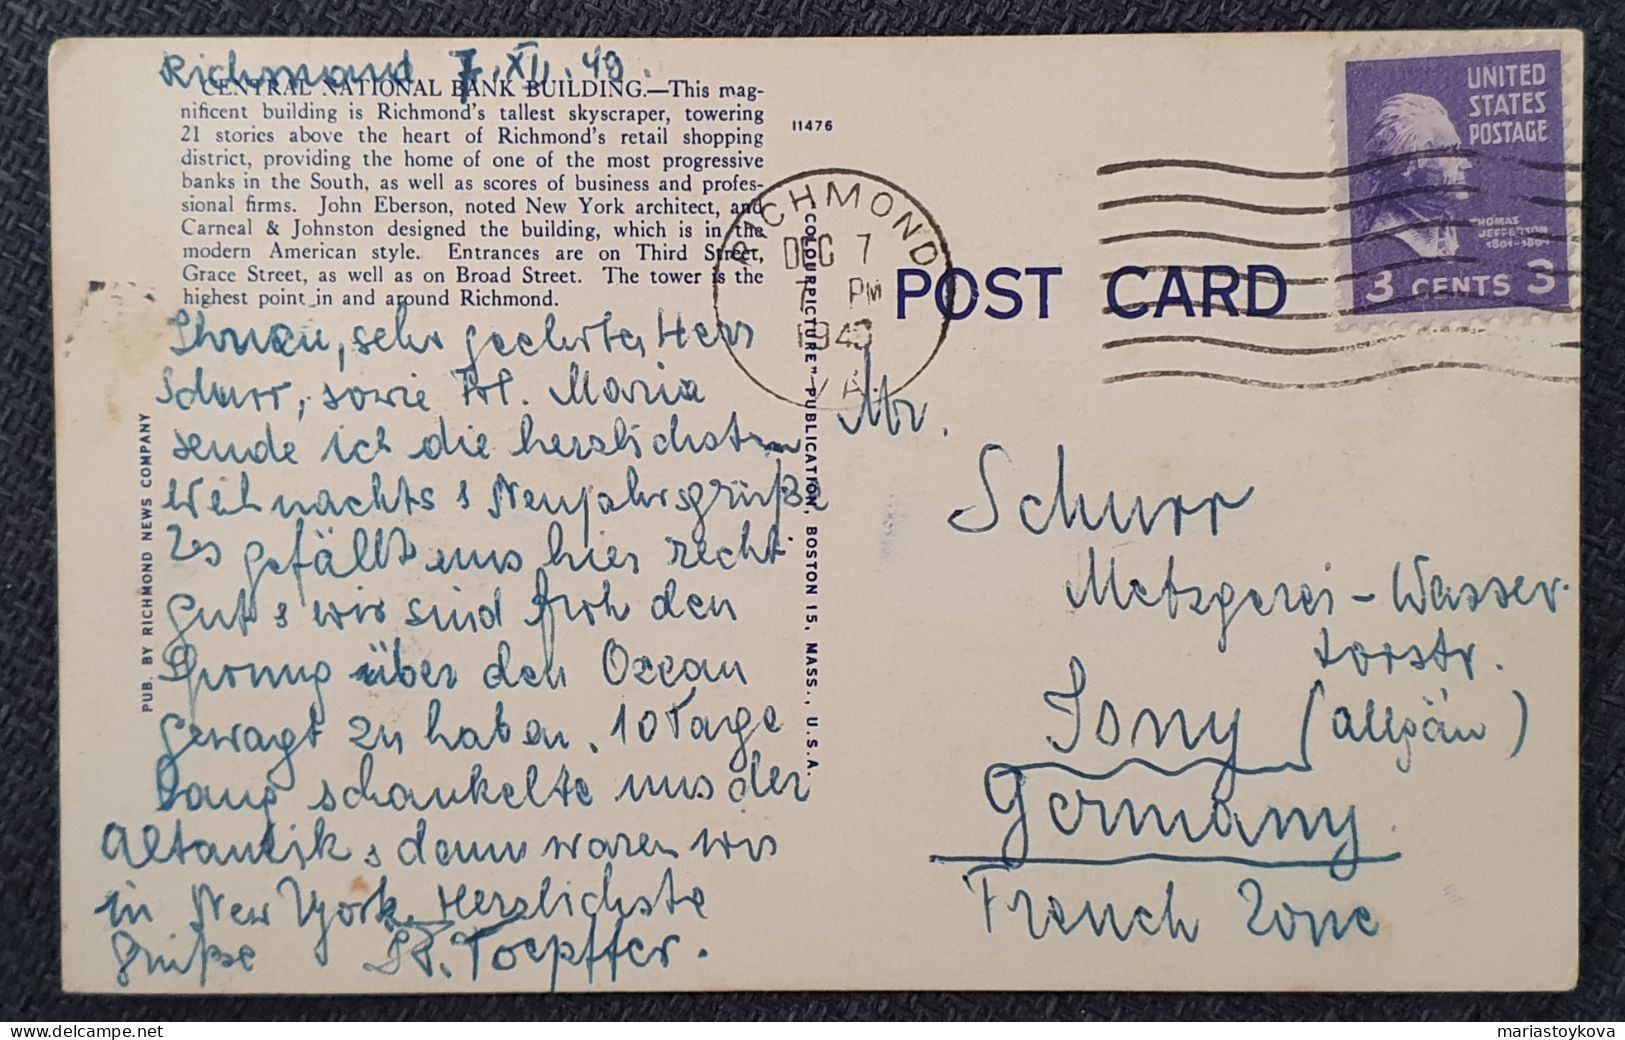 Richmond 7. XII. 49.
CENTRAL NATIONAL BANK BUILDING.—This mag-
nificent building is Richmond's tallest skyscraper, towering
21 stories above the heart of Richmond's retail shopping
district, providing the home of one of the most progressive
banks in the South, as well as scores of business and profes-
sional firms. John Eberson, noted New York architect, and
Carneal & Johnston designed the building, which is in the
modern American style. Entrances are on Third Street,
Grace Street, as well as on Broad Street. The tower is the
highest point in and around Richmond.
Ihnen, sehr geehrter Herr
Schurr, sowie Frl. Maria
sende ich die herzlichsten
Weihnachts & Neujahrsgrüße
Es gefällt uns hier recht
gut & wir sind froh den
Sprung über den Ozean
gewagt zu haben. 10 Tage
lang schaukelte uns der
Altantik & dann waren wir
in New York. Herzlichste
Grüße Toepffer.
PUB. BY RICHMOND NEWS COMPANY
11476
"COLOURPICTURE" PUBLICATION, BOSTON 15, MASS., U.S.A.
RICHMOND
DEC 7
PM
1949
VA.
POST CARD
UNITED
STATES
POSTAGE
THOMAS
JEFFERSON
1801-1809
3 CENTS 3
Mr.
Schurr
Metzgerei - Wasser-
torstr.
Isny (Allgäu)
Germany
French Zone
mariastoykova